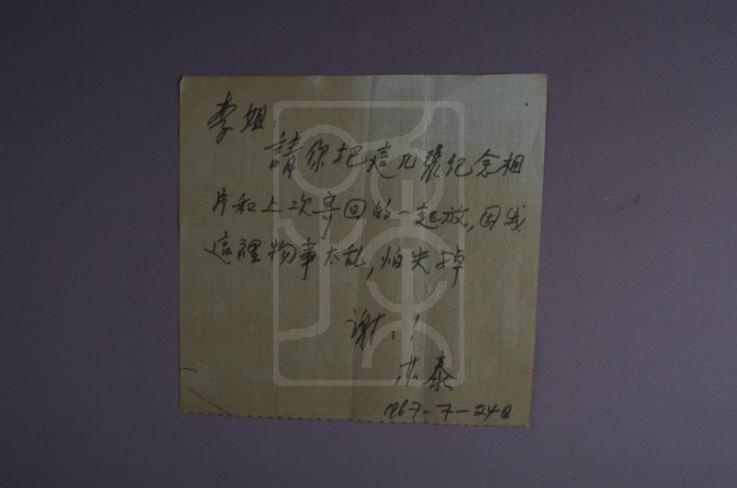 李姐：
請你把這几張紀念相
片和上次寄回的一起放，因我
這裡物事太乱，怕失掉
謝！
泰
1967-7-24日